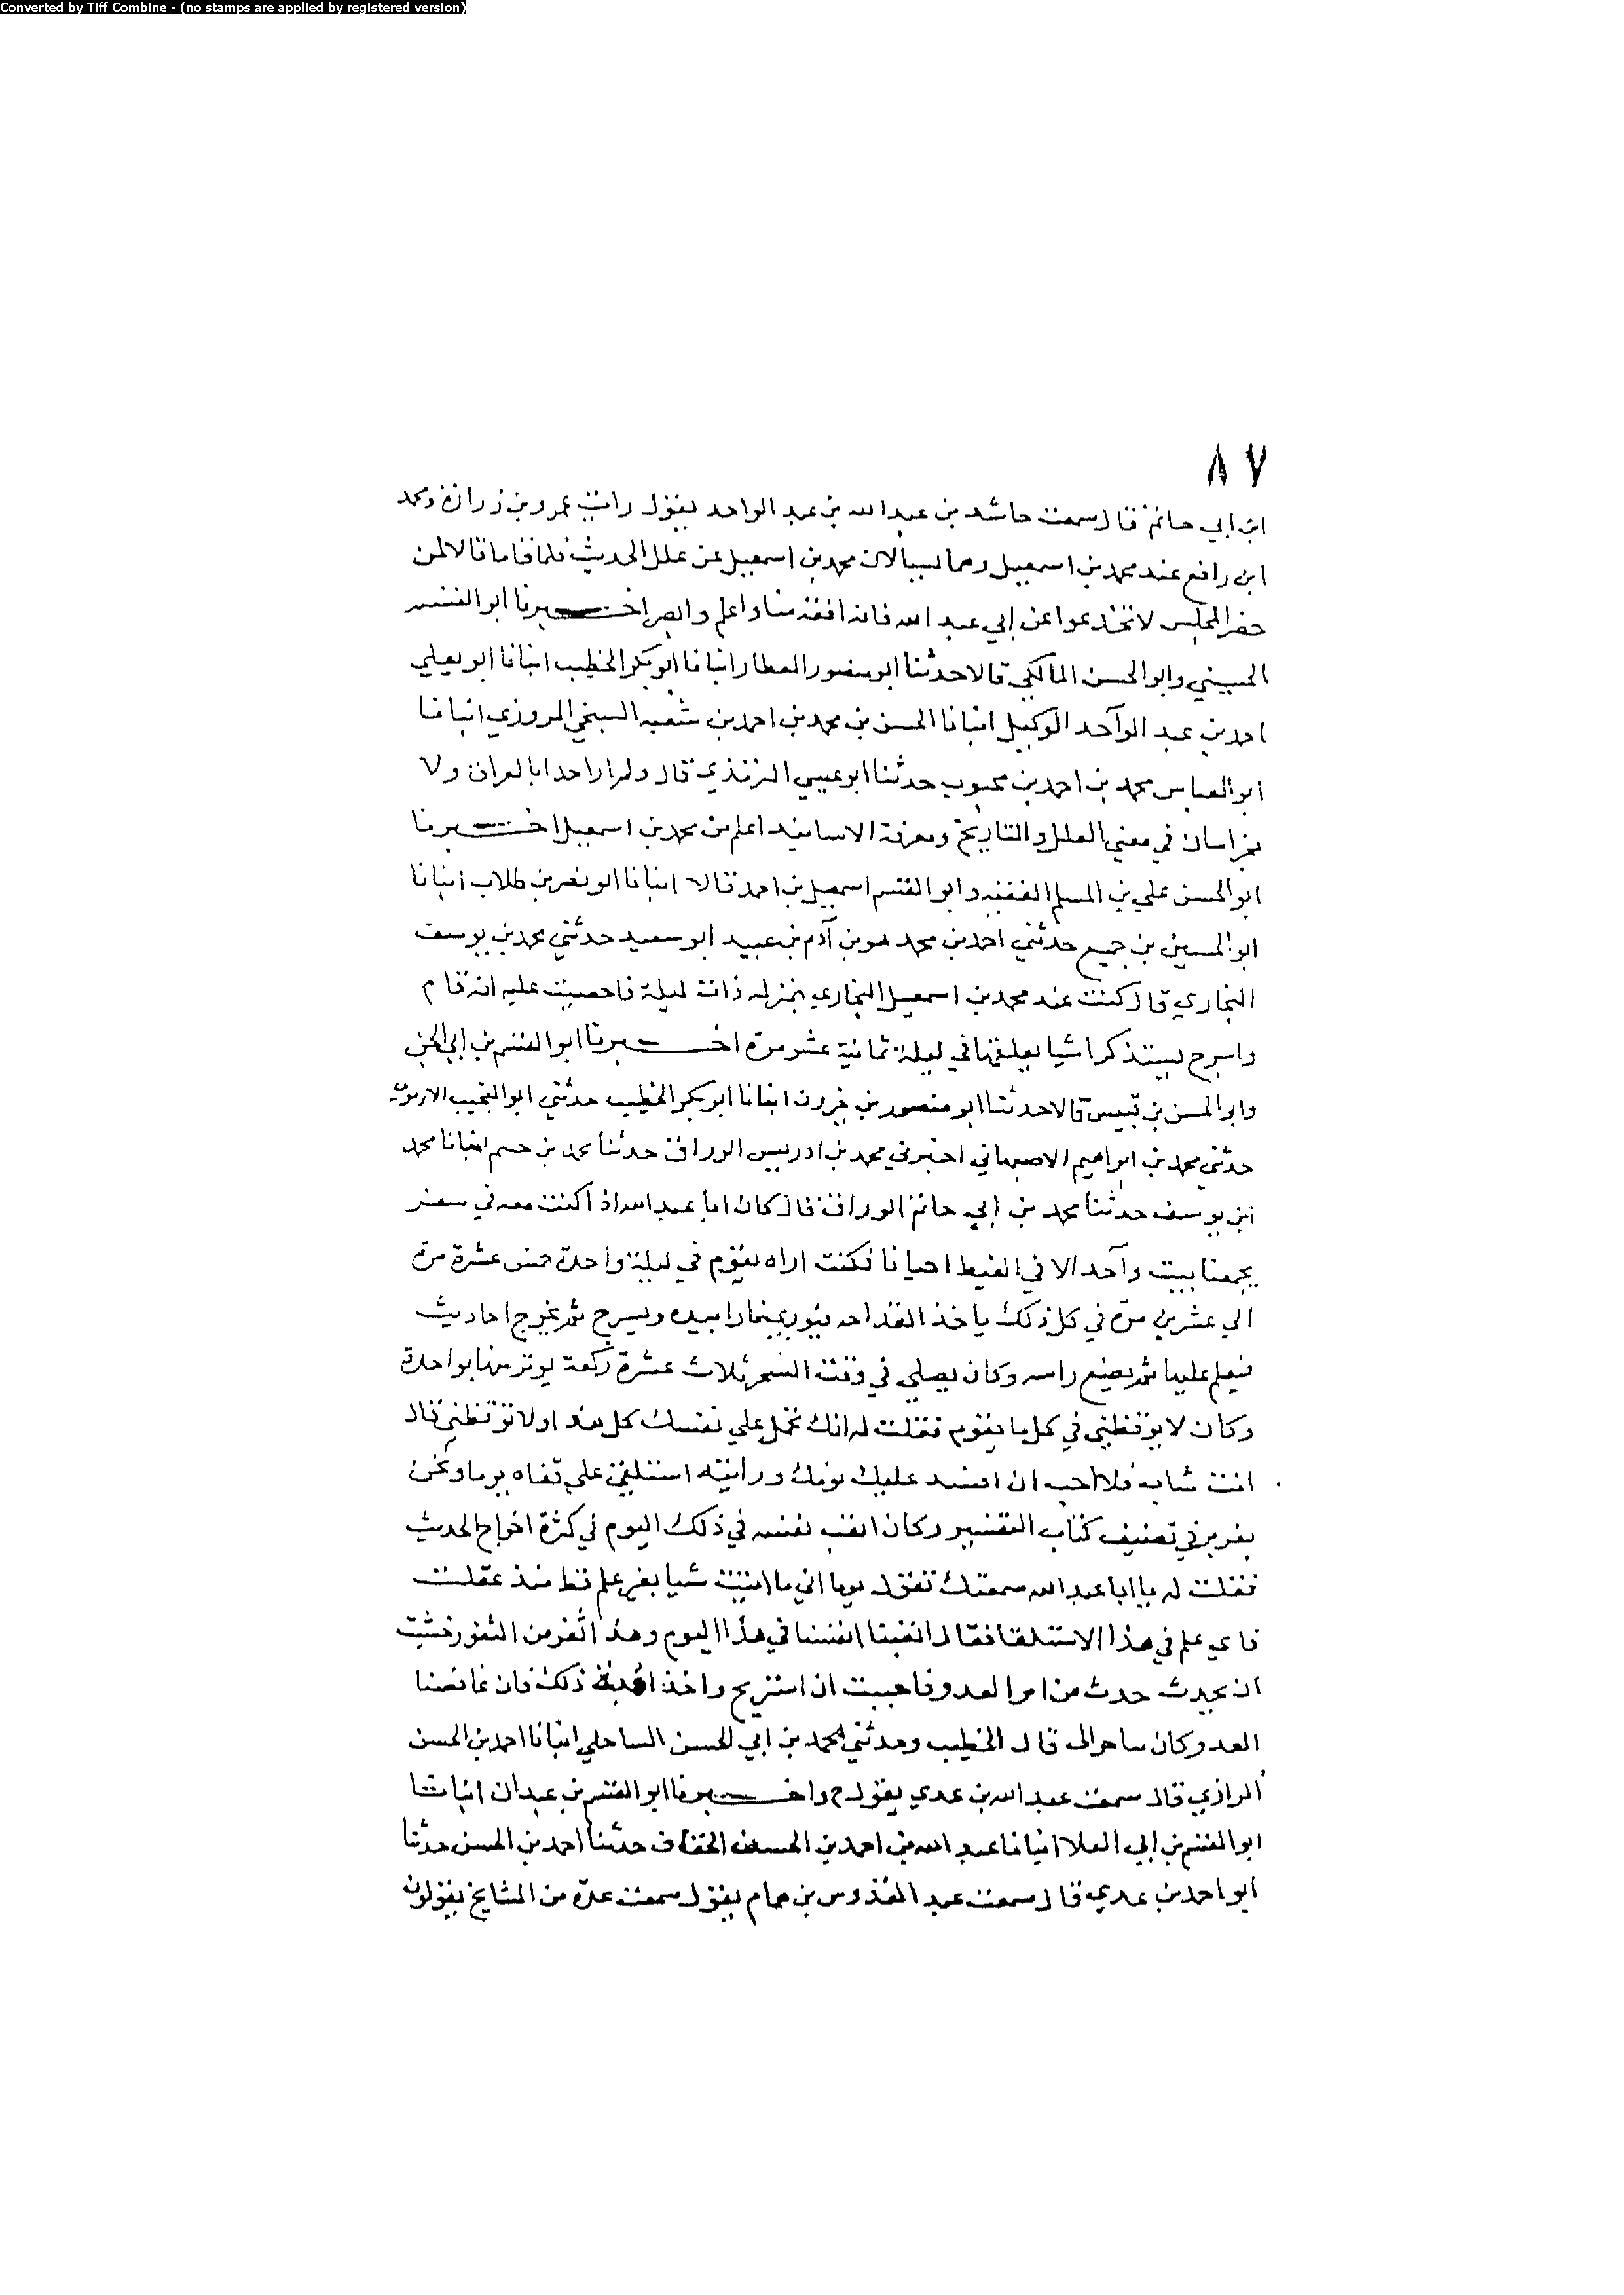 Converted by Tiff Combine - (no stamps are applied by registered version)
٨٧
ابن ابي حاتم قال سمعت حاشد بن عبد الله بن عبد الواحد يقول رايت عمرو بن زرارة ومحمد
ابن رافع عند محمد بن اسمعيل وهما يسالان محمد بن اسمعيل عن علل الحديث فلما قاما قالا لمن
حضر المجلس لا تخدعوا عن ابي عبد الله فانه افقه منا واعلم وابصر اخبرنا ابو القسم
الحسيني وابو الحسن المالكي قالا حدثنا ابو منصور العطار انبانا ابو بكر الخطيب انبانا ابو يعلي
احمد بن عبد الواحد الوكيل انبانا الحسن بن محمد بن احمد بن شعبه السنجي المروزي انبانا
ابو العباس محمد بن احمد بن محبوب حدثنا ابو عيسي الترمذي قال ولم ار احدا بالعراق ولا
بخراسان في معني العلل والتاريخ ومعرفة الاسانيد اعلم من محمد بن اسمعيل اخبرنا
ابو الحسن علي بن المسلم الفقيه وابو القسم اسمعيل بن احمد قالا انبانا ابو نصر بن طلاب انبانا
ابو الحسين بن جميع حدثني احمد بن محمد هو بن آدم بن عبيد ابو سعيد حدثني محمد بن يوسف
البخاري قال كنت عند محمد بن اسمعيل البخاري بمنزله ذات ليلة فاحصيت عليه انه قام
واسرج يستذكر اشيا يعلقها في ليلة ثمانية عشر مرة اخبرنا ابو القسم بن ابي الجن
وابو الحسن بن قبيس قالا حدثنا ابو منصور بن خيرون انبانا ابو بكر الخطيب حدثني ابو النجيب الارموي
حدثني محمد بن ابراهيم الاصبهاني اخبرني محمد بن ادريس الوراق حدثنا محمد بن حم انبانا محمد
ابن يوسف حدثنا محمد بن ابي حاتم الوراق قال كان ابا عبد الله اذا كنت معه في سفر
يجمعنا بيت واحد الا في القيظ احيانا فكنت اراه يقوم في ليلة واحدة خمس عشرة مرة
الي عشرين مرة في كل ذلك ياخذ القداحه فيوري نارا بيده ويسرج ثم يخرج احاديث
فيعلم عليها ثم يضع راسه وكان يصلي في وقت السحر ثلاث عشرة ركعة يوتر منها بواحدة
وكان لا يوقظني في كل ما يقوم فقلت له انك تحمل علي نفسك كل هذا ولا توقظني قال
انت شاب فلا احب ان افسد عليك نومك ورايته استلقي علي قفاه يوما ونحن
بفربر في تصنيف كتاب التفسير وكان اتعب نفسه في ذلك اليوم في كثرة اخراج الحديث
فقلت له يا ابا عبد الله سمعتك تقول يوما اني ما اتيت شيا بغير علم قط منذ عقلت
فاي علم في هذا الاستلقا فقال اتعبنا انفسنا في هذا اليوم وهذا ثغر من الثغور خشيت
ان يحدث حدث من امر العدو فاحببت ان استريح واخذ اهبة ذلك فان غافصنا
العدو كان بنا حراك قال الخطيب وحدثني محمد بن ابي الحسن الساحلي انبانا احمد بن الحسن
الرازي قال سمعت عبد الله بن عدي يقول ح واخبرنا ابو القسم بن عبدان انبانا
ابو القسم بن ابي العلا انبانا عبد الله بن احمد بن الحسين الخفاف حدثنا احمد بن الحسن حدثنا
ابو احمد بن عدي قال سمعت عبد القدوس بن همام يقول سمعت عدة من المشايخ يقولون